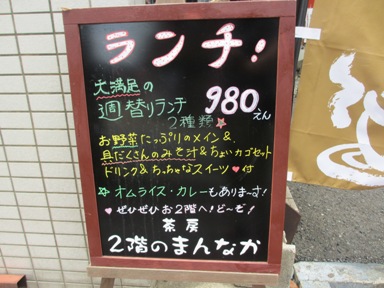 ランチ!
大満足の
週替りランチ 980えん
2種類
お野菜たっぷりのメイン&
具だくさんのみそ汁&ちょいカゴセット
ドリンク&ちっちゃなスイーツ♥付
☆オムライス・カレーもありまーす!
♥ぜひぜひお2階へ!ど〜ぞ!
茶房
2階のまんなか